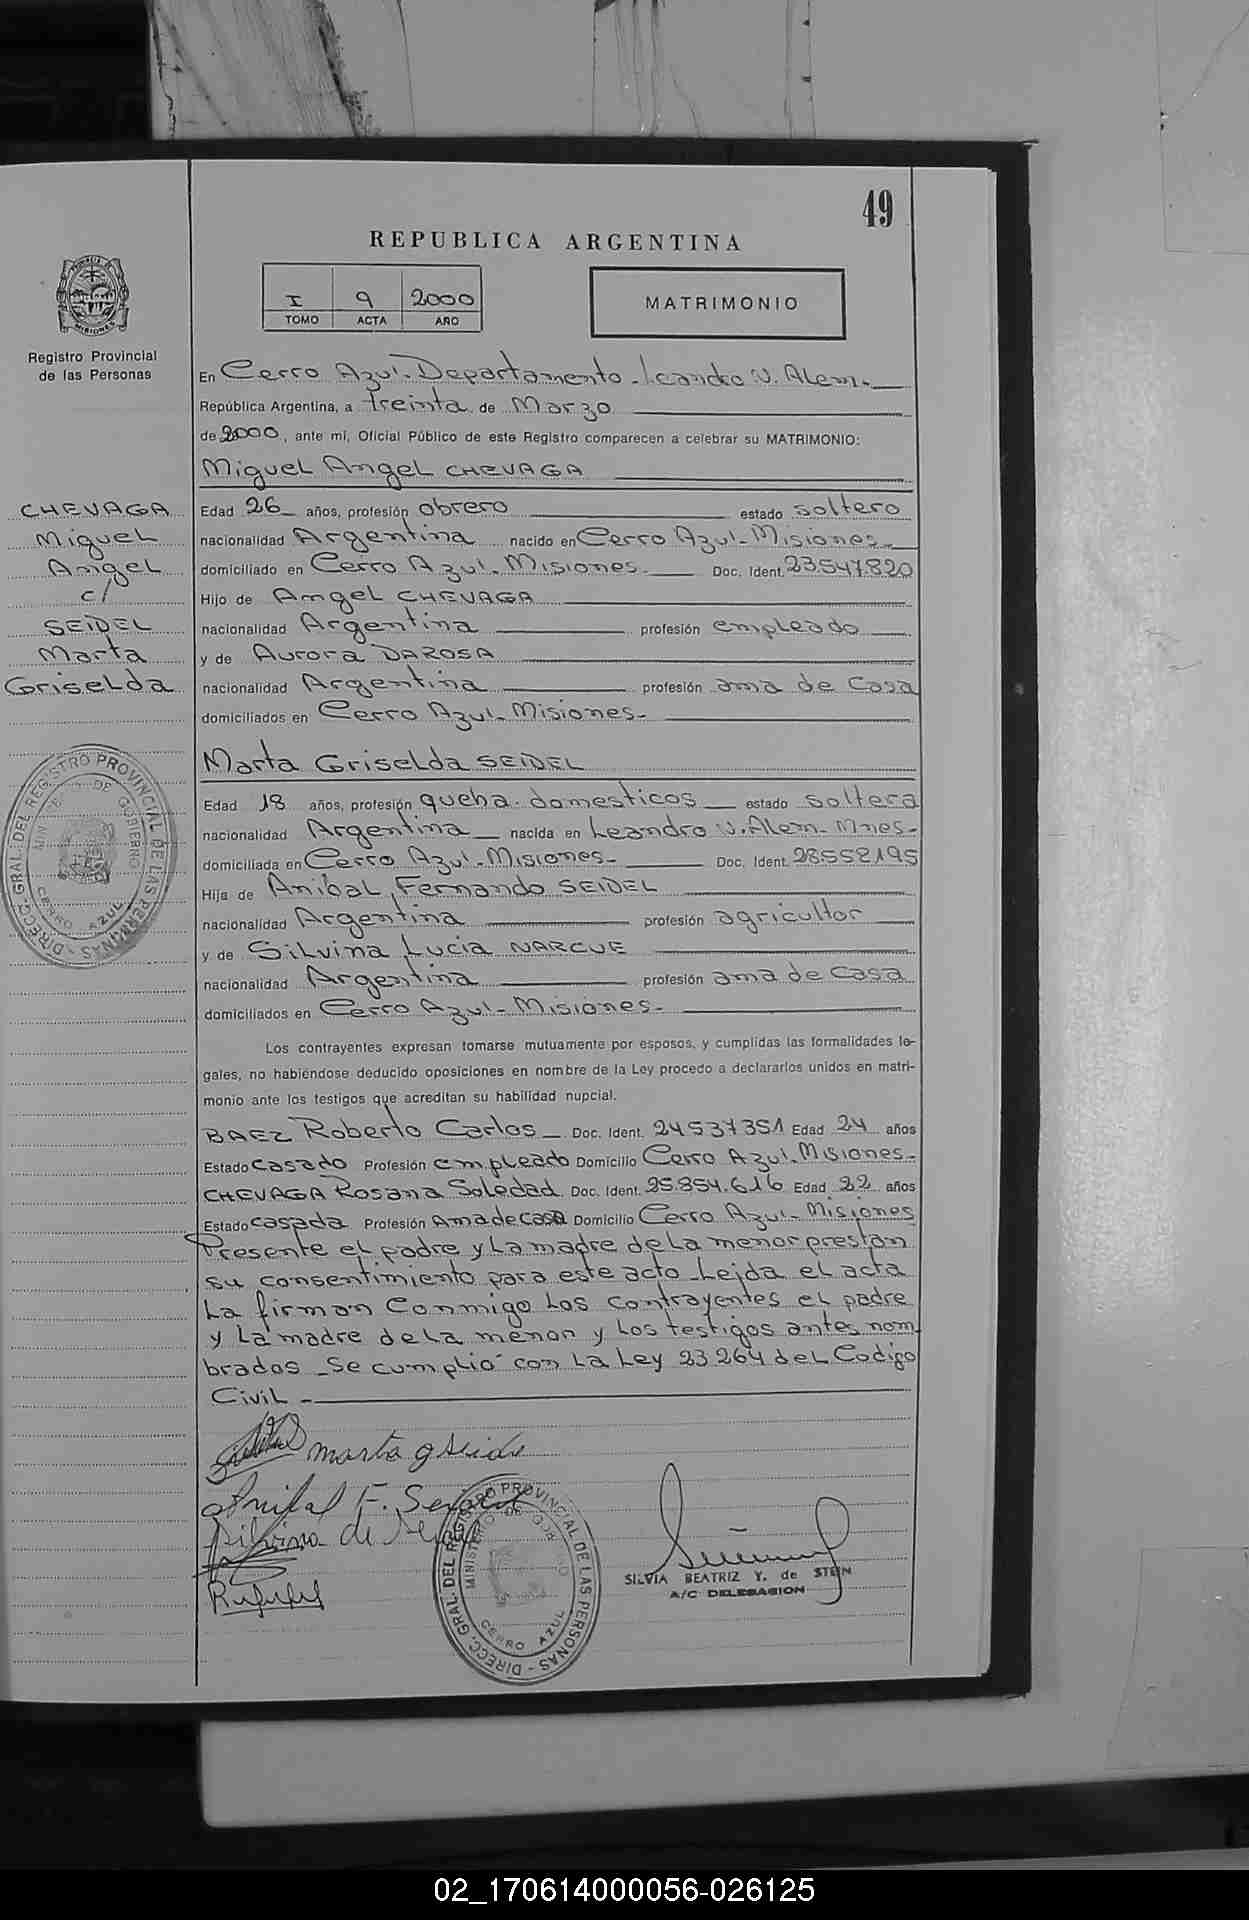 49
REPUBLICA ARGENTINA
I 9 2000
TOMO ACTA AÑO
MATRIMONIO
Registro Provincial
de las Personas
En Cerro Azul-Departamento-Leandro N. Alem-
República Argentina, a treinta de Marzo
de 2000, ante mí, Oficial Público de este Registro comparecen a celebrar su MATRIMONIO:
Miguel Angel CHEVAGA
CHEVAGA
Miguel
Angel
c/
SEIDEL
Marta
Griselda
Edad 26 años, profesión obrero estado soltero
nacionalidad Argentina nacido en Cerro Azul-Misiones-
domiciliado en Cerro Azul-Misiones- Doc. Ident. 23.547.820
Hijo de Angel CHEVAGA
nacionalidad Argentina profesión empleado
y de Aurora DAROSA
nacionalidad Argentina profesión ama de casa
domiciliados en Cerro Azul-Misiones-
Marta Griselda SEIDEL
Edad 18 años, profesión queha. domesticos estado soltera
nacionalidad Argentina nacida en Leandro N. Alem-Mnes-
domiciliada en Cerro Azul-Misiones- Doc. Ident. 28552195
Hija de Anibal Fernando SEIDEL
nacionalidad Argentina profesión agricultor
y de Silvina Lucia
nacionalidad Argentina profesión ama de casa
domiciliados en Cerro Azul-Misiones-
Los contrayentes expresan tomarse mutuamente por esposos, y cumplidas las formalidades le-
gales, no habiéndose deducido oposiciones en nombre de la Ley procedo a declararlos unidos en matri-
monio ante los testigos que acreditan su habilidad nupcial.
BAEZ Roberto Carlos Doc. Ident. 24537351 Edad 24 años
Estado casado Profesión empleado Domicilio Cerro Azul-Misiones-
CHEVAGA Rosana Soledad Doc. Ident. 25.854.616 Edad 22 años
Estado casada Profesión Ama de casa Domicilio Cerro Azul-Misiones
Presente el padre y la madre de la menor prestan
su consentimiento para este acto Leida el acta
La firman conmigo los contrayentes el padre
y la madre de la menor y los testigos antes nom
brados-Se cumplió con la Ley 23264 del Codigo
Civil-
marta g Seidel
Anibal F. Seidel
Silvina de Seidel
DIRECC. GRAL. DEL REGISTRO PROVINCIAL DE LAS PERSONAS
MINISTERIO DE GOBIERNO
CERRO AZUL
SILVIA BEATRIZ Y. de STEIN
A/C DELEGACION
02_170614000056-026125